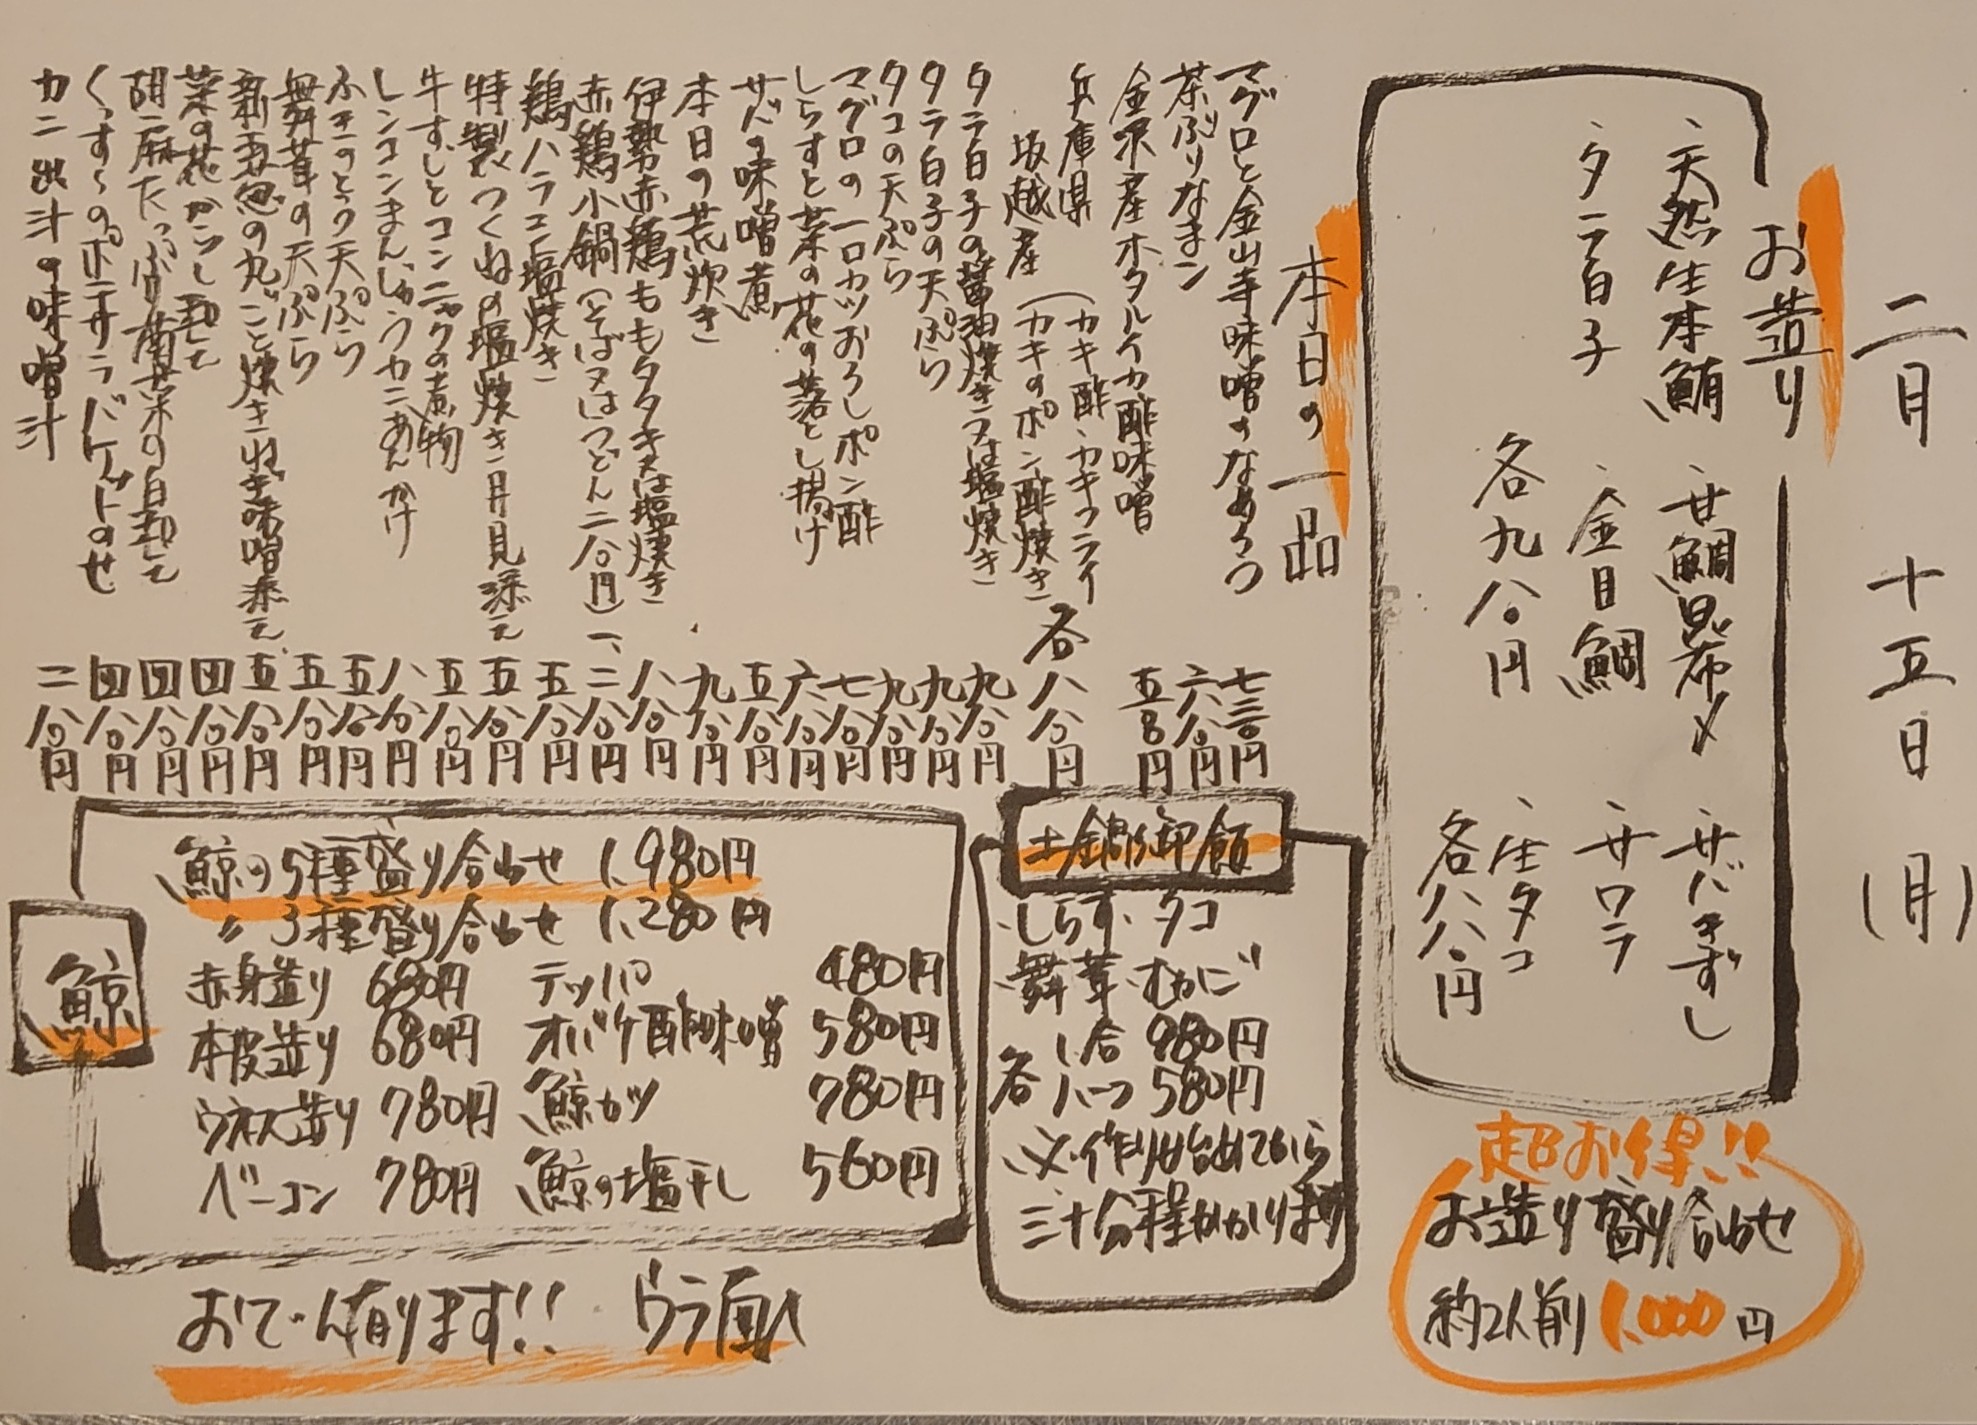 二月 十五日 (月)
お造り
、天然生本鮪 、甘鯛昆布〆 、サバきずし
、タラ白子 、金目鯛 、サワラ
各九八〇円 、生タコ
各八八〇円
超お得!!
お造り盛り合わせ
約2人前 1,000円
本日の一品
マグロと金山寺味噌のなめろう 七三〇円
茶ぶりなまこ 六八〇円
金沢産ホタルイカ酢味噌 五八〇円
兵庫県 (カキ酢・カキフライ
坂越産 (カキのポン酢焼き 各八八〇円
タラ白子の醤油焼き又は塩焼き 九八〇円
タラ白子の天ぷら 九八〇円
タコの天ぷら 九八〇円
マグロの一口カツおろしポン酢 七八〇円
しらすと菜の花の落とし揚げ 六八〇円
サバの味噌煮 五八〇円
本日の荒炊き 九八〇円
伊勢赤鶏ももタタキ又は塩焼き 八八〇円
赤鶏小鍋(そば又はうどん二八〇円) 一、二八〇円
鶏ハラミ塩焼き 五八〇円
特製つくねの塩焼き 月見添え 五八〇円
牛すじとコンニャクの煮物 五八〇円
レンコンまんじゅうカニあんかけ 八八〇円
ふきのとう天ぷら 五八〇円
舞茸の天ぷら 五八〇円
新玉葱の丸ごと焼き ねぎ味噌添え 五八〇円
菜の花からし和え 四八〇円
胡麻たっぷり菊菜の白和え 四八〇円
くっすぅのポテサラバケットのせ 四八〇円
カニ出汁の味噌汁 二八〇円
土鍋御飯
・しらす・タコ
・舞茸・むかご
各 1合 980円
ハーフ 580円
※作り始めてから
三十分程かかります
鯨
鯨の5種盛り合わせ 1,980円
〃 3種盛り合わせ 1,280円
赤身造り 680円 テッパ 480円
本皮造り 680円 オバケ酢味噌 580円
ウネス造り 780円 鯨カツ 780円
ベーコン 780円 鯨の塩干し 560円
おでん有ります!! ウラ面へ